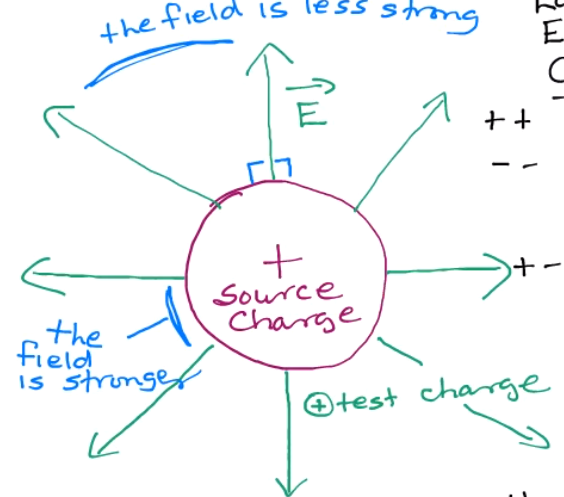 the field is less strong
E
E
+ +
- -
+
source
charge
+ -
the
field
is stronger
+ test charge